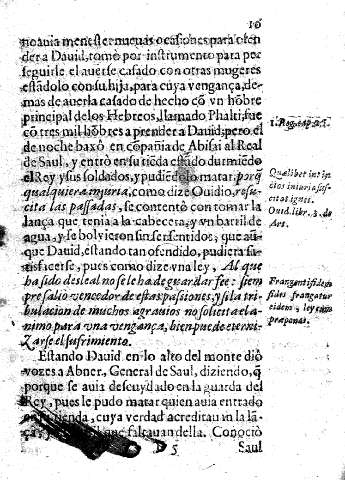 10
no auia menester nueuas ocasiones para ofen
der a Dauid, tomò por instrumento para per
seguirle el auerse casado con otras mugeres
estãdolo con su hija, para cuya vengança, de-
mas de auerla casado de hecho cõ vn hõbre
principal de los Hebreos, llamado Phalti, fue
cõ tres mil hõbres a prender a Dauid, pero el
de noche baxò en cõpañia de Abisai al Real
de Saul, y entrò en su tiẽda estãdo durmiẽdo
el Rey y sus soldados, y pudiẽdolo matar, porq̃
qualquiera injuria, como dize Ouidio, resu-
cita las passadas, se contentò con tomar la
lança que tenia a la cabecera, y vn barril de
agua, y se boluieron sin ser sentidos, que aũ-
que Dauid, estando tan ofendido, pudiera sa-
tisfacerse, pues como dize vna ley, Al que
ha sido desleal no se le ha de guardar fee: siem
pre saliò vencedor de estas passiones, y si la tri-
bulacion de muchos agrauios no solicita el a-
nimo para vna vengança, bien puede eterni-
zarse el sufrimiento.
Estando Dauid en lo alto del monte diò
vozes a Abner, General de Saul, diziendo, q̃
porque se auia descuydado en la guarda del
Rey, pues le pudo matar quien auia entrado
tienda, cuya verdad acreditauan la lã-
ça, que faltauan della. Conociò
D 5 Saul
1. Reg. cap.
Quælibet
cios iniuria sus-
citat ignes.
Ouid. libr. 3. de
Art.
Frangenti fidem
fides frangatur
eidem, ley cum
præponas.